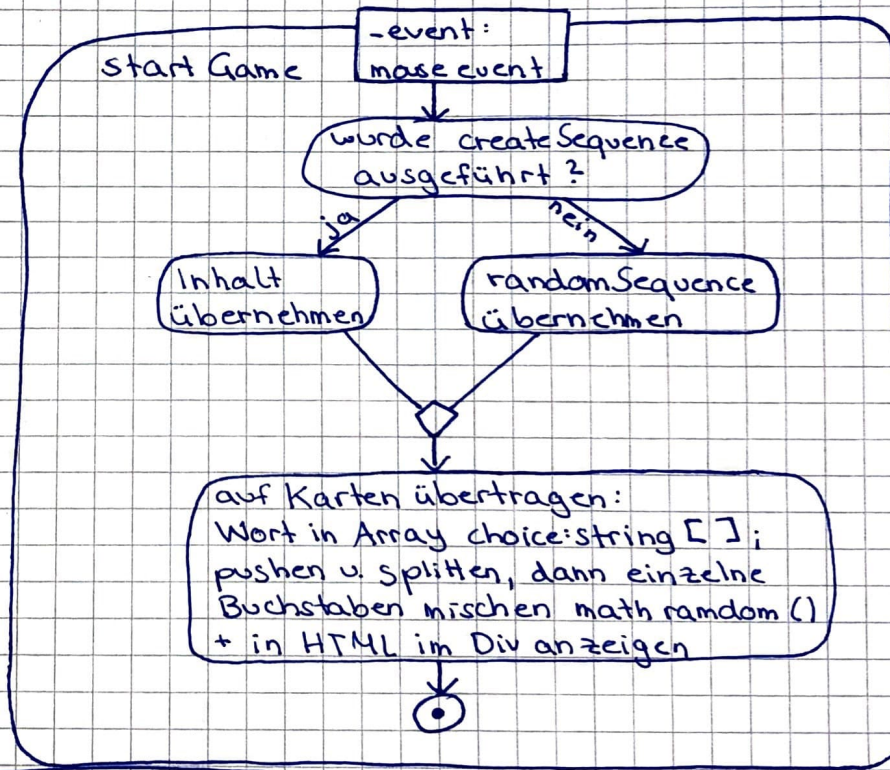 -event:
mase event
start Game
wurde createSequence
ausgeführt?
ja
nein
Inhalt
übernehmen
randomSequence
übernehmen
auf Karten übertragen:
Wort in Array choice:string [];
pushen u. splitten, dann einzelne
Buchstaben mischen math ramdom ()
+ in HTML im Div anzeigen